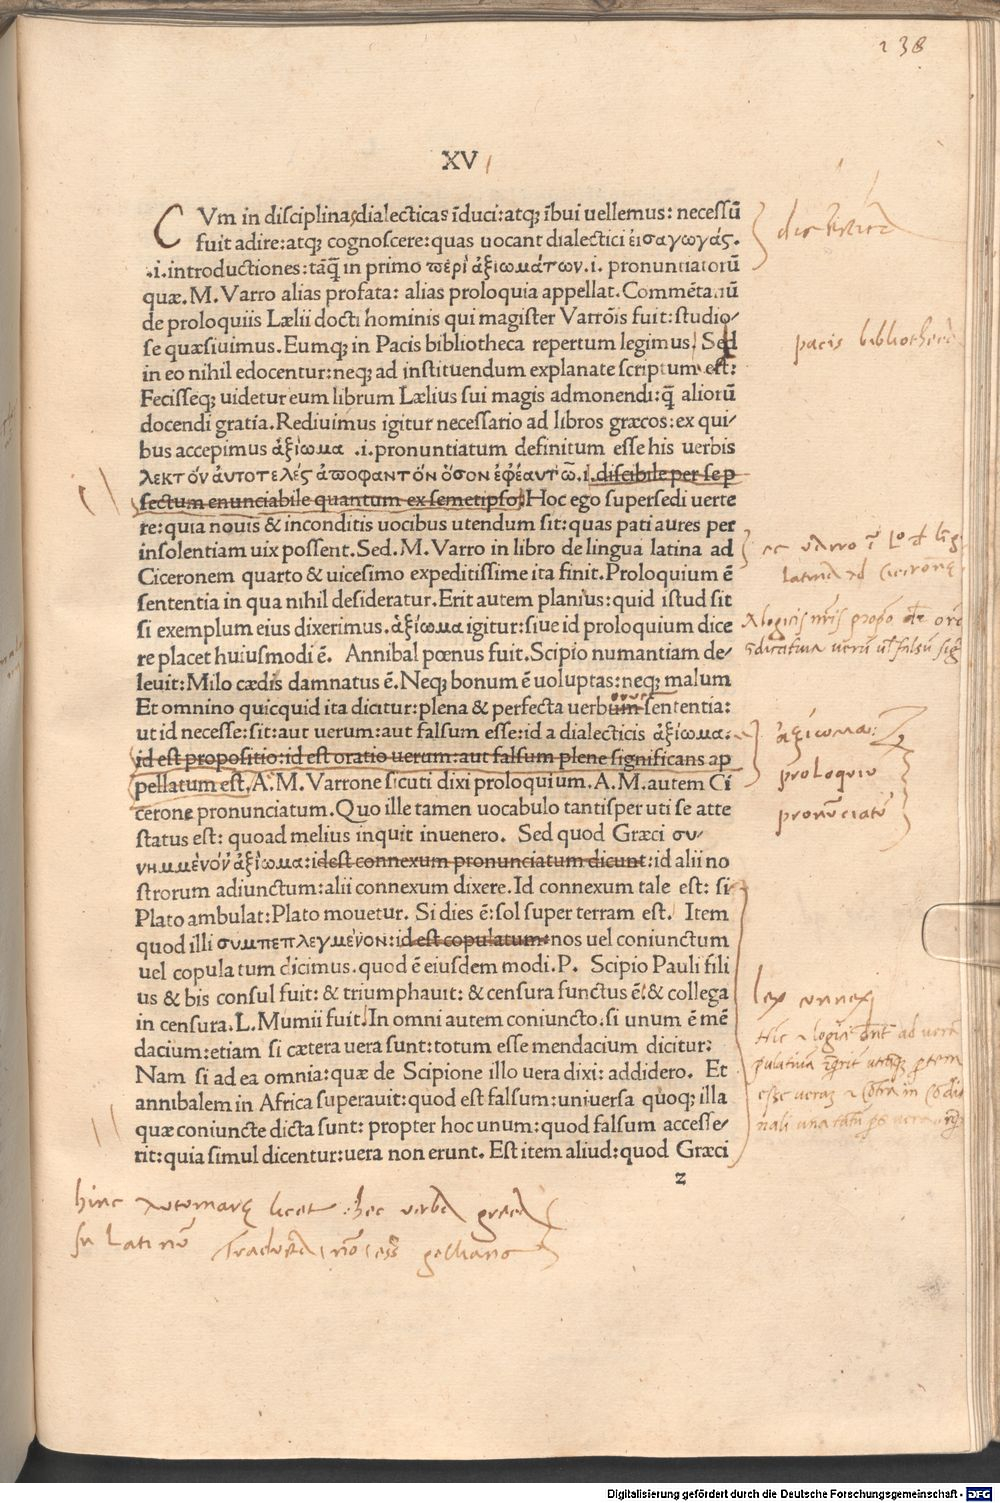 238
XV
CVm in disciplinas dialecticas īduci: atq; ībui uellemus: necessū
fuit adire: atq; cognoscere: quas uocant dialectici ἐισαγωγάς.
.i. introductiones: tāq̄ in primo περὶ ἀξιωμάτων .i. pronuntiatorū
quæ. M. Varro alias profata: alias proloquia appellat. Commētariū
de proloquiis Lælii docti hominis qui magister Varrōis fuit: studio/
se quæsiuimus. Eumq; in Pacis bibliotheca repertum legimus. Sed
in eo nihil edocentur: neq; ad instituendum explanate scriptum est:
Fecisseq; uidetur eum librum Lælius sui magis admonendi: q̄ aliorū
docendi gratia. Rediuimus igitur necessario ad libros græcos: ex qui/
bus accepimus ἀξίωμα .i. pronuntiatum definitum esse his uerbis
λεκτὸν ἀυτοτελὲς ἀποφαντὸν ὅσον ἐφ᾽ ἑαυτῷ .i. discibile per se p
fectum enunciabile quantum ex semetipso. Hoc ego supersedi uerte
re: quia nouis & inconditis uocibus utendum sit: quas pati aures per
insolentiam uix possent. Sed. M. Varro in libro de lingua latina ad
Ciceronem quarto & uicesimo expeditissime ita finit. Proloquium ē
sententia in qua nihil desideratur. Erit autem planius: quid istud sit
si exemplum eius dixerimus. ἀξίωμα igitur: siue id proloquium dice
re placet huiusmodi ē. Annibal pœnus fuit. Scipio numantiam de/
leuit: Milo cædis damnatus ē. Neq; bonum ē uoluptas: neq; malum
Et omnino quicquid ita dicitur: plena & perfecta uerbum sententia:
ut id necesse: sit: aut uerum: aut falsum esse: id a dialecticis ἀξίωμα:
id est propositio: id est oratio uerum: aut falsum plene significans ap
pellatum est. A. M. Varrone sicuti dixi proloquium. A. M. autem Ci
cerone pronunciatum. Quo ille tamen uocabulo tantisper uti se atte
status est: quoad melius inquit inuenero. Sed quod Græci συ/
νημμένον ἀξίωμα: id est connexum pronunciatum dicunt: id alii no
strorum adiunctum: alii connexum dixere. Id connexum tale est: si
Plato ambulat: Plato mouetur. Si dies ē: sol super terram est. Item
quod illi συμπεπλεγμένον: id est copulatum: nos uel coniunctum
uel copulatum dicimus. quod ē eiusdem modi. P. Scipio Pauli fili
us & bis consul fuit: & triumphauit: & censura functus ē: & collega
in censura. L. Mumii fuit. In omni autem coniuncto. si unum ē mē
dacium: etiam si cætera uera sunt: totum esse mendacium dicitur:
Nam si ad ea omnia: quæ de Scipione illo uera dixi: addidero. Et
annibalem in Africa superauit: quod est falsum: uniuersa quoq; illa
quæ coniuncte dicta sunt: propter hoc unum: quod falsum accesse/
rit: quia simul dicentur: uera non erunt. Est item aliud: quod Græci
z
pacis bibliotheca
ἀξίωμα:
proloquiū
pronūciatū
lex connexi
hinc licet hec verba greca
in Latinū non gelliano
Digitalisierung gefördert durch die Deutsche Forschungsgemeinschaft - DFG